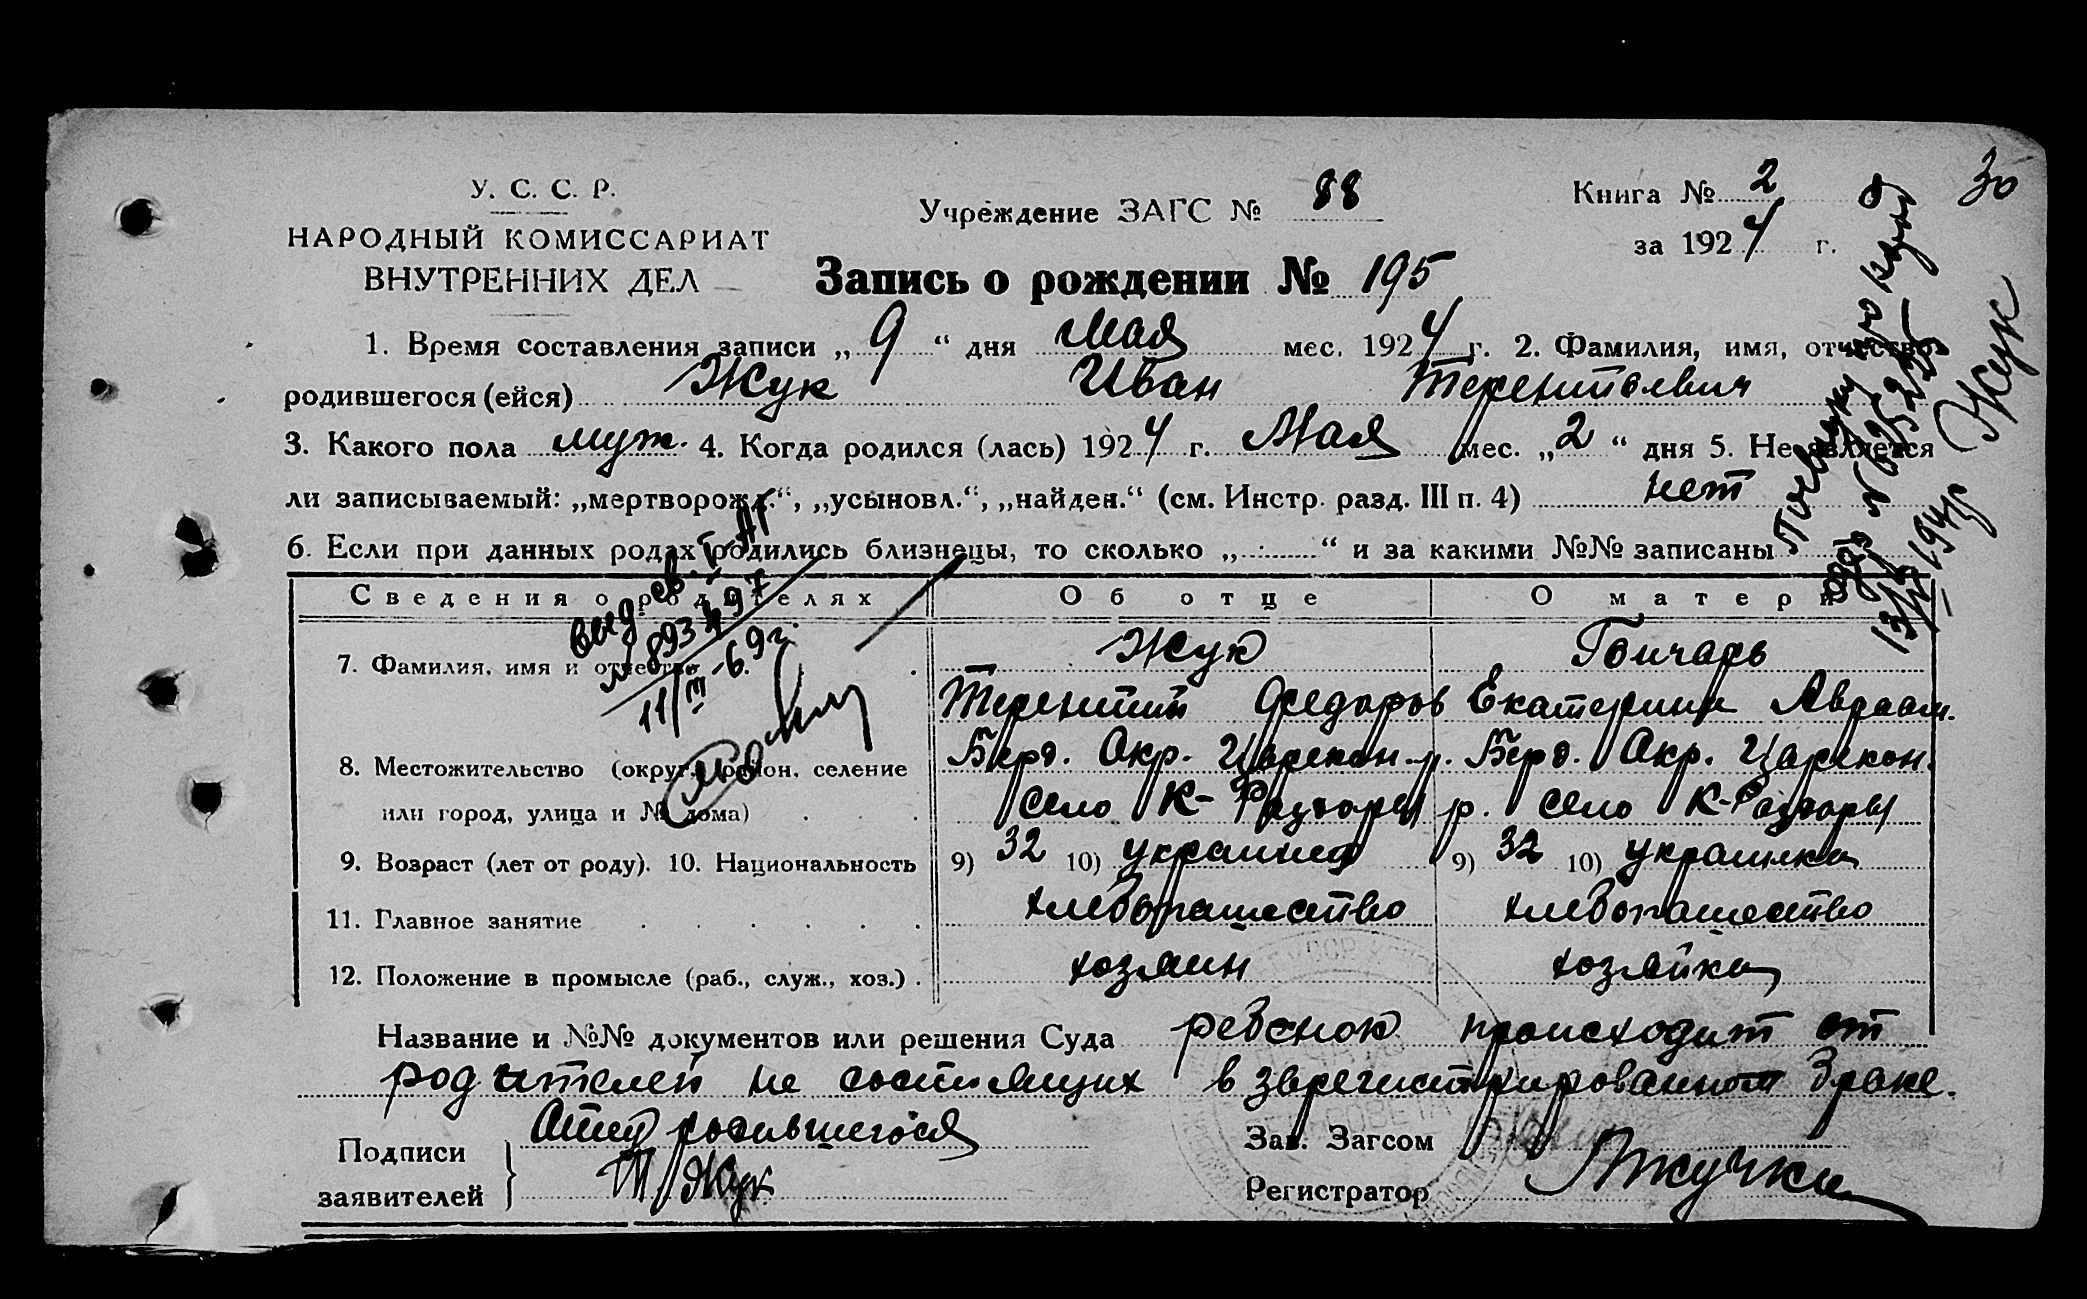 У. С. С. Р.
НАРОДНЫЙ КОМИССАРИАТ
ВНУТРЕННИХ ДЕЛ
Учреждение ЗАГС № 88
Книга № 2
за 1924 г.
30
Запись о рождении № 195
1. Время составления записи „ 9 “ дня Мая мес. 1924 г. 2. Фамилия, имя, отчество
родившегося (ейся) Жук Иван Терентьевич
3. Какого пола муж. 4. Когда родился (лась) 1924 г. Мая мес. „ 2 “ дня 5. Не является
ли записываемый: „мертворожд.“, „усыновл.“, „найден.“ (см. Инстр. разд. III п. 4) нет
6. Если при данных родах родились близнецы, то сколько „ “ и за какими №№ записаны
Сведения о родителях Об отце О матери
7. Фамилия, имя и отчество Жук Гончарь
Терентий Федоров Екатерина Авраам.
8. Местожительство (округ, район, селение Берд. Окр. Царекон. р. Берд. Окр. Царекон.
или город, улица и № дома) село К-Раздоры р. село К-Раздоры
9. Возраст (лет от роду). 10. Национальность 9) 32 10) украинец 9) 32 10) украинка
11. Главное занятие хлебопашество хлебопашество
12. Положение в промысле (раб., служ., хоз.) хозяин хозяйка
Название и №№ документов или решения Суда ребенок происходит от
родителей не состоящих в зарегистрированном браке.
Подписи
заявителей
Отец родившегося
Т Жук
Зав. Загсом
Регистратор
Жук